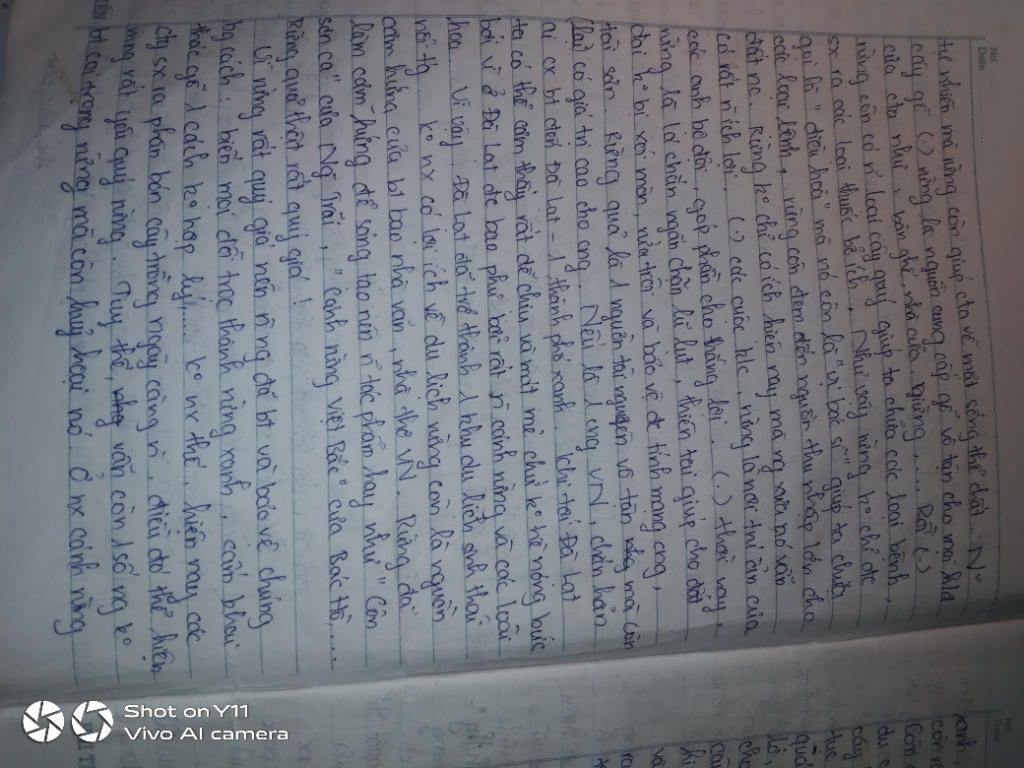 No.
Date
tự nhiên mà rừng còn giúp cta về mặt sống thể chất. N°
cây gỗ (.) rừng là nguồn cung cấp gỗ vô tận cho mọi
của cta như: bàn ghế, nhà cửa, giường, ... Rồi (.)
rừng còn có n° loại cây quý giúp ta chữa các loại bệnh,
sx ra các loại thuốc bổ ích. Như vậy rừng ko chỉ đc
gọi là "điều hoà" mà nó còn là "vị bác sĩ" giúp ta chữa
các loại bệnh, rừng còn đem đến nguồn thu nhập lớn cho
đất nc. Rừng ko chỉ có ích hiện nay mà ng xưa nó vẫn
có rất n° ích lợi, (.) các cuộc k/c, rừng là nơi trú ẩn của
các anh bộ đội, góp phần cho thắng lợi. (.) thời nay,
rừng là lá chắn ngăn chặn lũ lụt, thiên tai giúp cho đất
đai ko bị xói mòn, rửa trôi và bảo vệ đc tính mạng con,
tài sản. Rừng quả là 1 nguồn tài nguyên vô tận mà còn
có giá trị cao cho cng. Nếu là 1 cng VN, chắn hẳn
ai cx bt đến Đà Lạt - 1 thành phố xanh. Khi tới Đà Lạt
ta có thể cảm thấy rất dễ chịu và mát mẻ chứ ko hề nóng bức
bởi vì ở Đà Lạt đc bao phủ bởi rất n° cánh rừng và các loài
hoa. Vì vậy, Đà Lạt đã trở thành 1 khu du lịch sinh thái
nổi tg Ko nx có lợi ích về du lịch rừng còn là nguồn
cảm hứng của bt bao nhà văn, nhà thơ VN. Rừng đã
làm cảm hứng để sáng tạo nên n° tác phẩm hay như "Côn
sơn ca" của Ng Trãi, "cảnh rừng Việt Bắc" của Bác Hồ,...
Rừng quả thật rất quý giá!
Vì rừng rất quý giá nên n° ng đã bt và bảo vệ chúng
bg cách: biến mọi đồi trọc thành rừng xanh, cấm
thác gỗ 1 cách ko hợp lý,... Ko nx thế, hiện nay các
cty sx ra phân bón cây trồng ngày càng n°, điều đó thể hiện
mng rất yêu quý rừng. Tuy thế, vẫn còn 1 số ng ko
bt coi trọng rừng mà còn huỷ hoại nó. Ở nx cánh rừng
Shot on Y11
Vivo AI camera